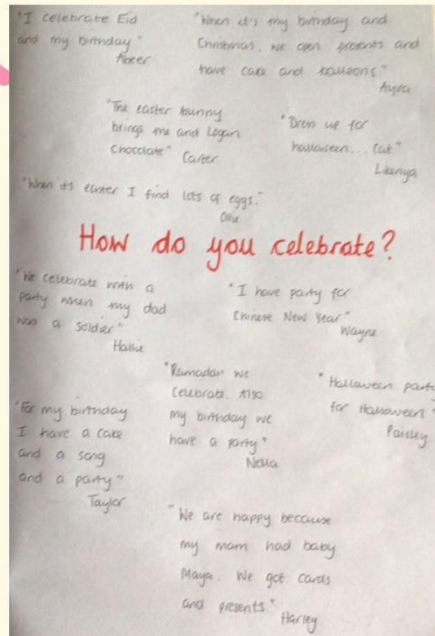 "I celebrate Eid
and my birthday"
"When it's my birthday and
Christmas, we open presents and
have cake and balloons"
Ayra
"The easter bunny
brings me and Logan
Chocolate" Carter
"Dress up for
halloween... cat"
"When its easter I find lots of eggs."
Ollie
How do you celebrate?
"We celebrate with a
party when my dad
was a soldier"
Hallie
"I have party for
Chinese New Year"
Wayne
"Ramadan we
celebrate. Also
my birthday we
have a party"
Nella
"Halloween party
for Halloween"
Paisley
"For my birthday
I have a cake
and a song
and a party"
Taylor
"We are happy because
my mam had baby
Maya. We got cards
and presents."
Harley